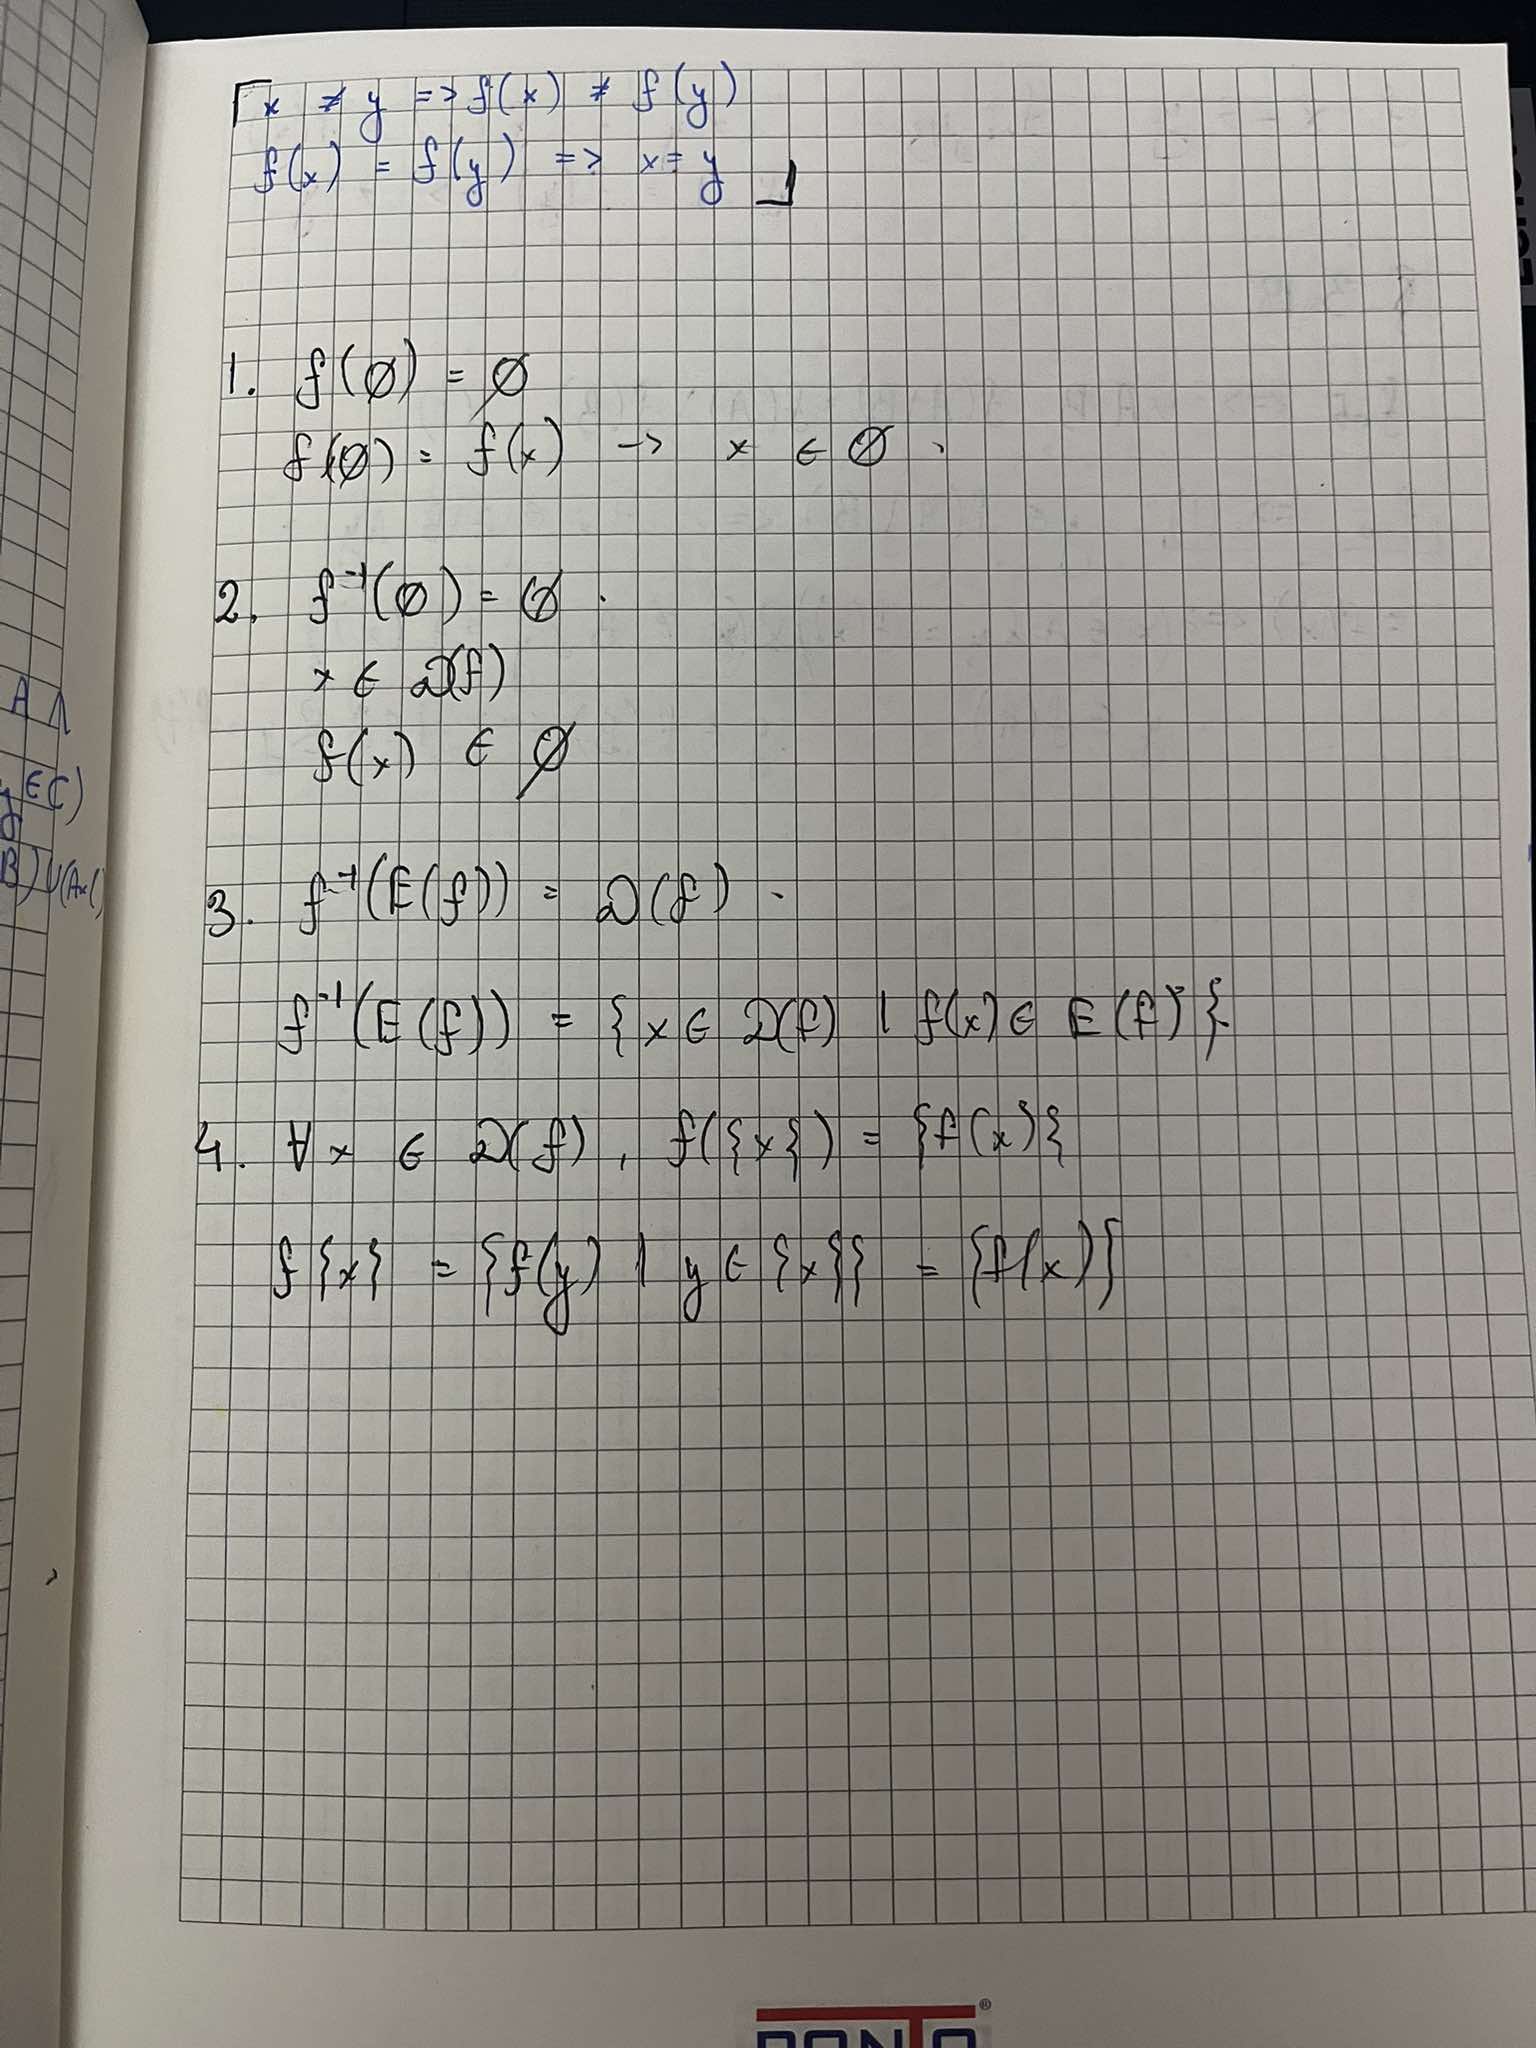 x ≠ y => f(x) ≠ f(y)
f(x) = f(y) => x = y
1. f(∅) = ∅
f(∅) = f(x) -> x ∈ ∅ .
2. f⁻¹(∅) = ∅ .
x ∈ D(f)
f(x) ∈ ∅
3. f⁻¹(E(f)) = D(f) .
f⁻¹(E(f)) = {x ∈ D(f) | f(x) ∈ E(f)}
4. ∀x ∈ D(f), f({x}) = {f(x)}
f{x} = {f(y) | y ∈ {x}} = {f(x)}
A ∧
y ∈ C)
B) ∪ (A×C)